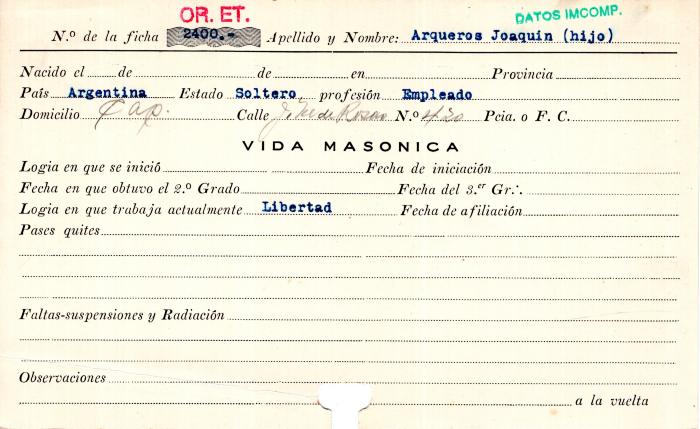 OR. ET.
DATOS IMCOMP.
N.º de la ficha 2400.- Apellido y Nombre: Arqueros Joaquin (hijo)
Nacido el de de en Provincia
País Argentina Estado Soltero profesión Empleado
Domicilio Cap. Calle J. M. de Rosas N.º 430 Pcia. o F. C.
VIDA MASONICA
Logia en que se inició Fecha de iniciación
Fecha en que obtuvo el 2.º Grado Fecha del 3.er Gr∴.
Logia en que trabaja actualmente Libertad Fecha de afiliación
Pases quites
Faltas-suspensiones y Radiación
Observaciones
a la vuelta